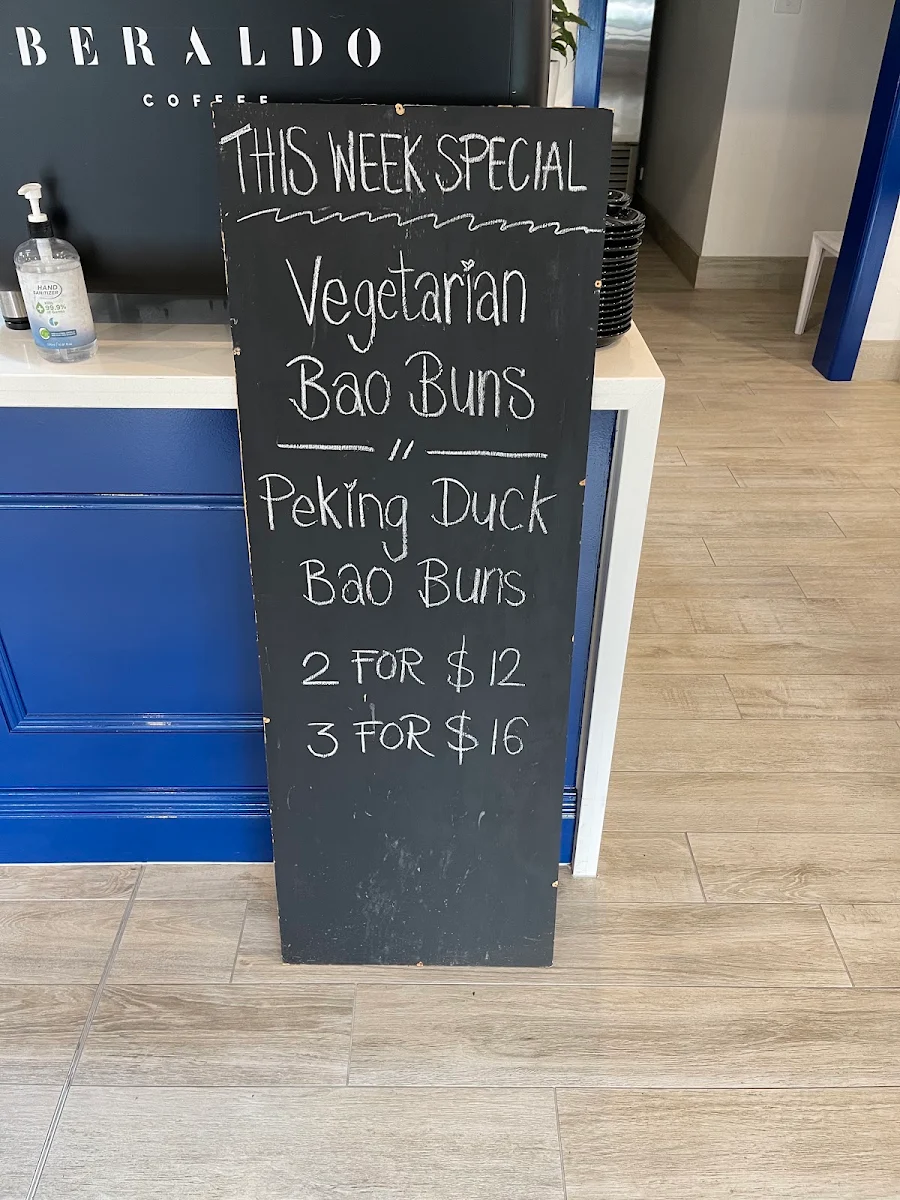 BERALDO
COFFEE
THIS WEEK SPECIAL
Vegetarian
Bao Buns
Peking Duck
Bao Buns
2 FOR $12
3 FOR $16
HAND
SANITIZER
99.9%